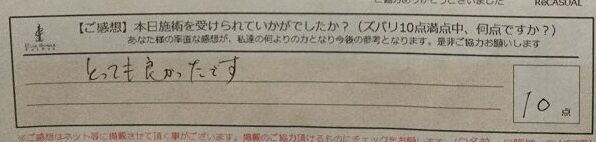 ReCASUAL
【ご感想】本日施術を受けられていかがでしたか?(ズバリ10点満点中、何点ですか?)
あなた様の率直な感想が、私達の何よりの力となり今後の参考となります。是非ご協力お願いします
とっても良かったです
10点
※ご感想はネット等に掲載させて頂く事がございます。掲載のご協力頂けるものにチェックをお願します